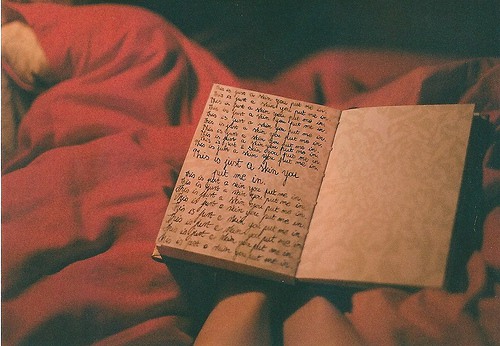 This is just a skin you put me in
This is just a skin you put me in
This is just a skin you put me in.
This is just a skin you put me in.
This is just a skin you put me in.
This is just a skin you put me in.
This is just a skin you put me in.
This is just a skin you put me in.
This is just a skin you
put me in.
This is just a skin you put me in.
This is just a skin you put me in.
This is just a skin you put me in.
This is just a skin you put me in.
This is just a skin you put me in.
This is just a skin you put me in.
This is just a skin you put me in.